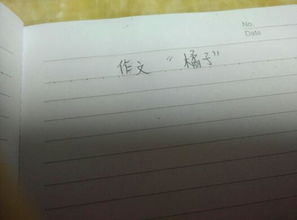 No.
Date
作文 “橘子”